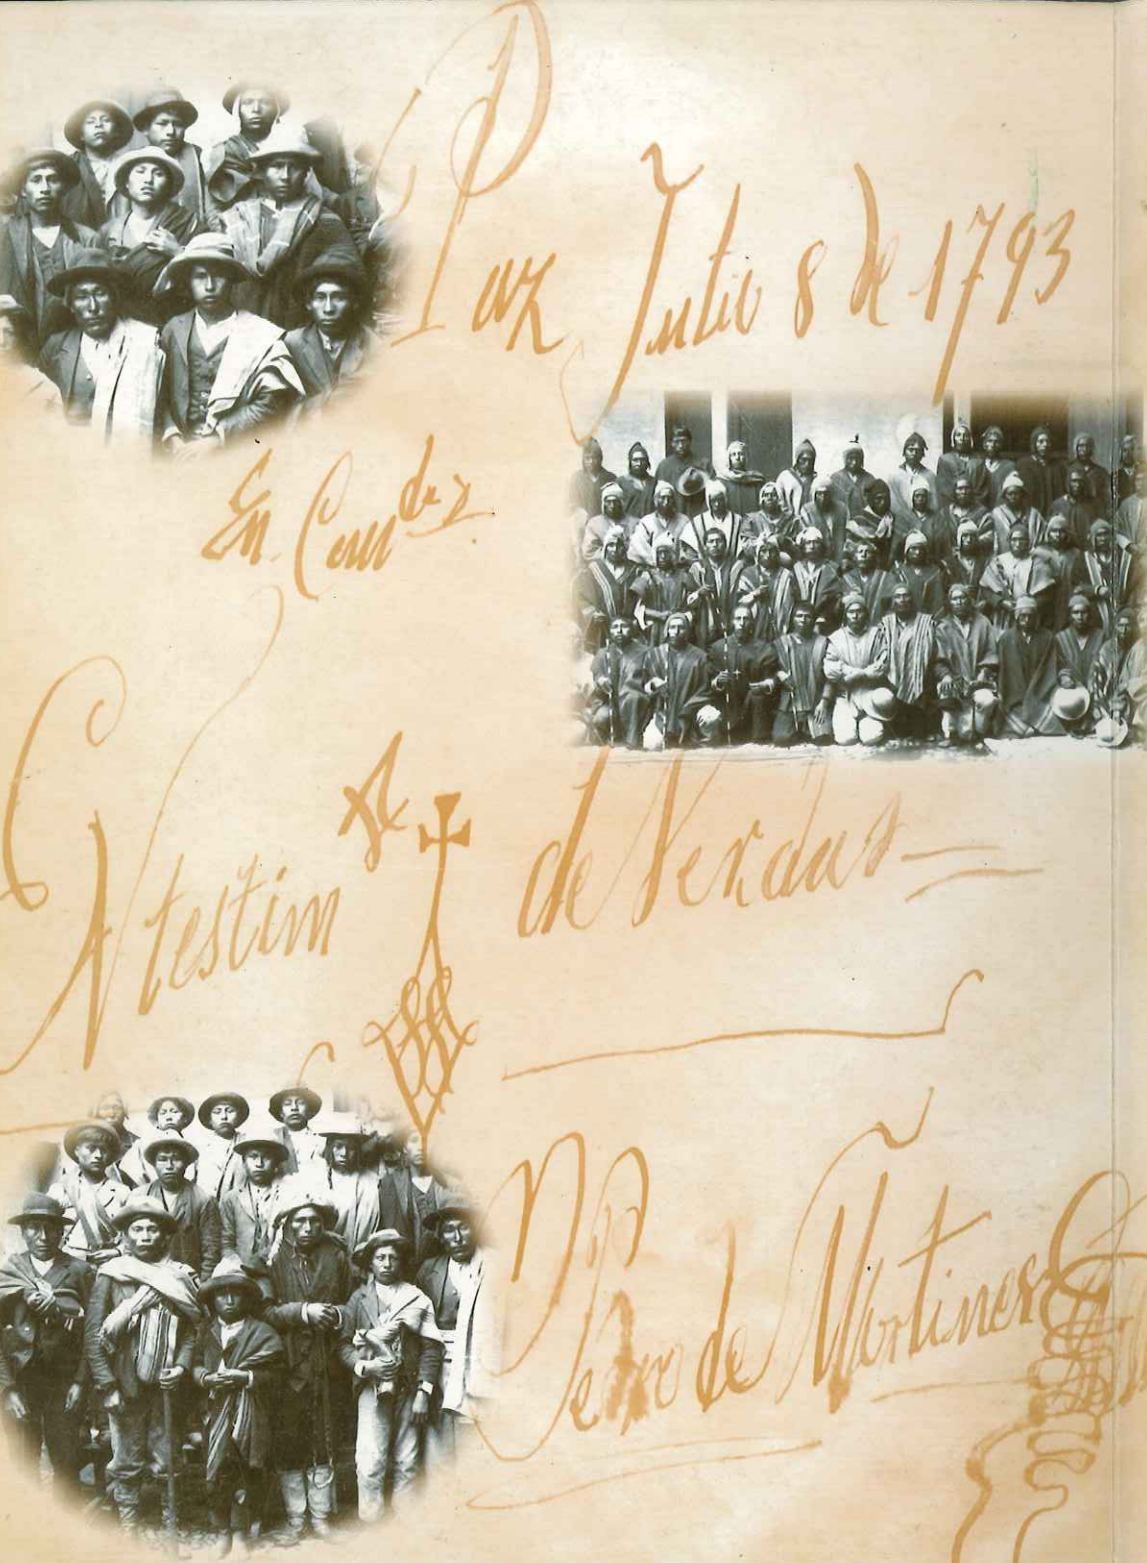 Paz Julio 8 de 1793
En
testim de Verdad
Pedro de Martines